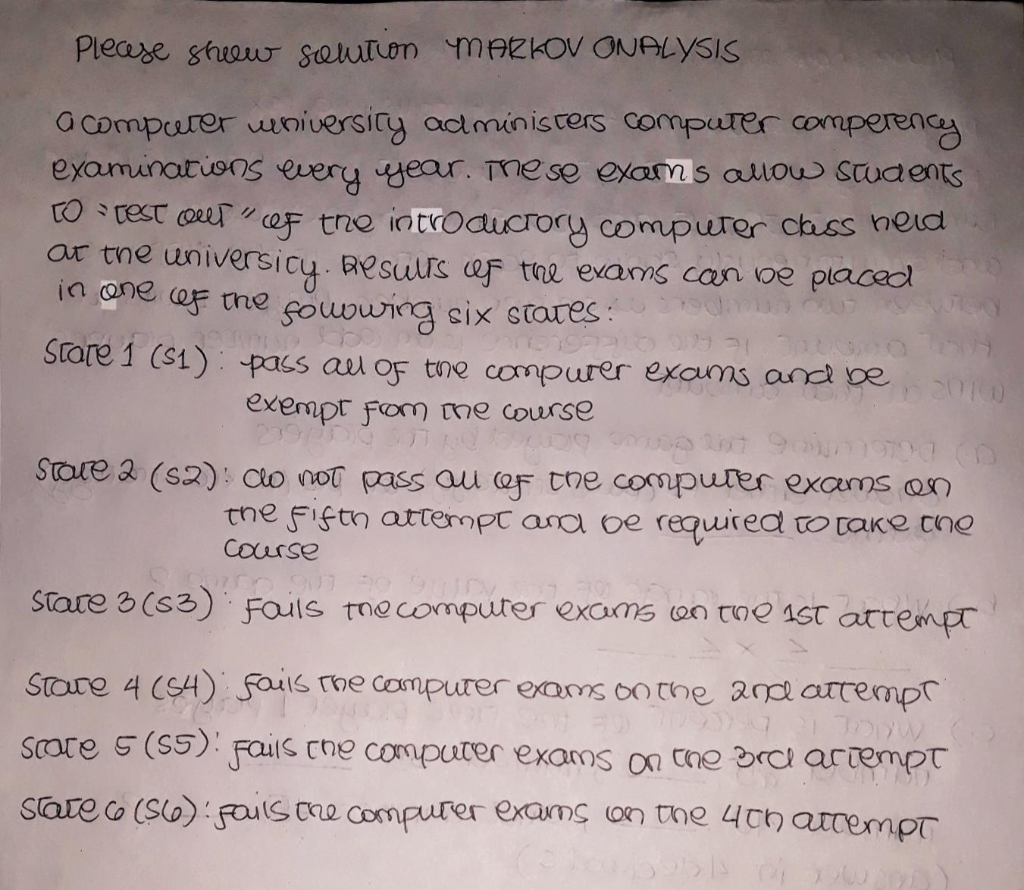 Please show solution MARKOV ANALYSIS
A computer university administers computer competency
examinations every year. These exams allow students
to "test out" of the introductory computer class held
at the university. Results of the exams can be placed
in one of the following six states:
State 1 (S1): pass all of the computer exams and be
exempt from the course
State 2 (S2): do not pass all of the computer exams on
the fifth attempt and be required to take the
course
State 3 (S3): Fails the computer exams on the 1st attempt
State 4 (S4): fails the computer exams on the 2nd attempt
State 5 (S5): Fails the computer exams on the 3rd attempt
State 6 (S6): fails the computer exams on the 4th attempt